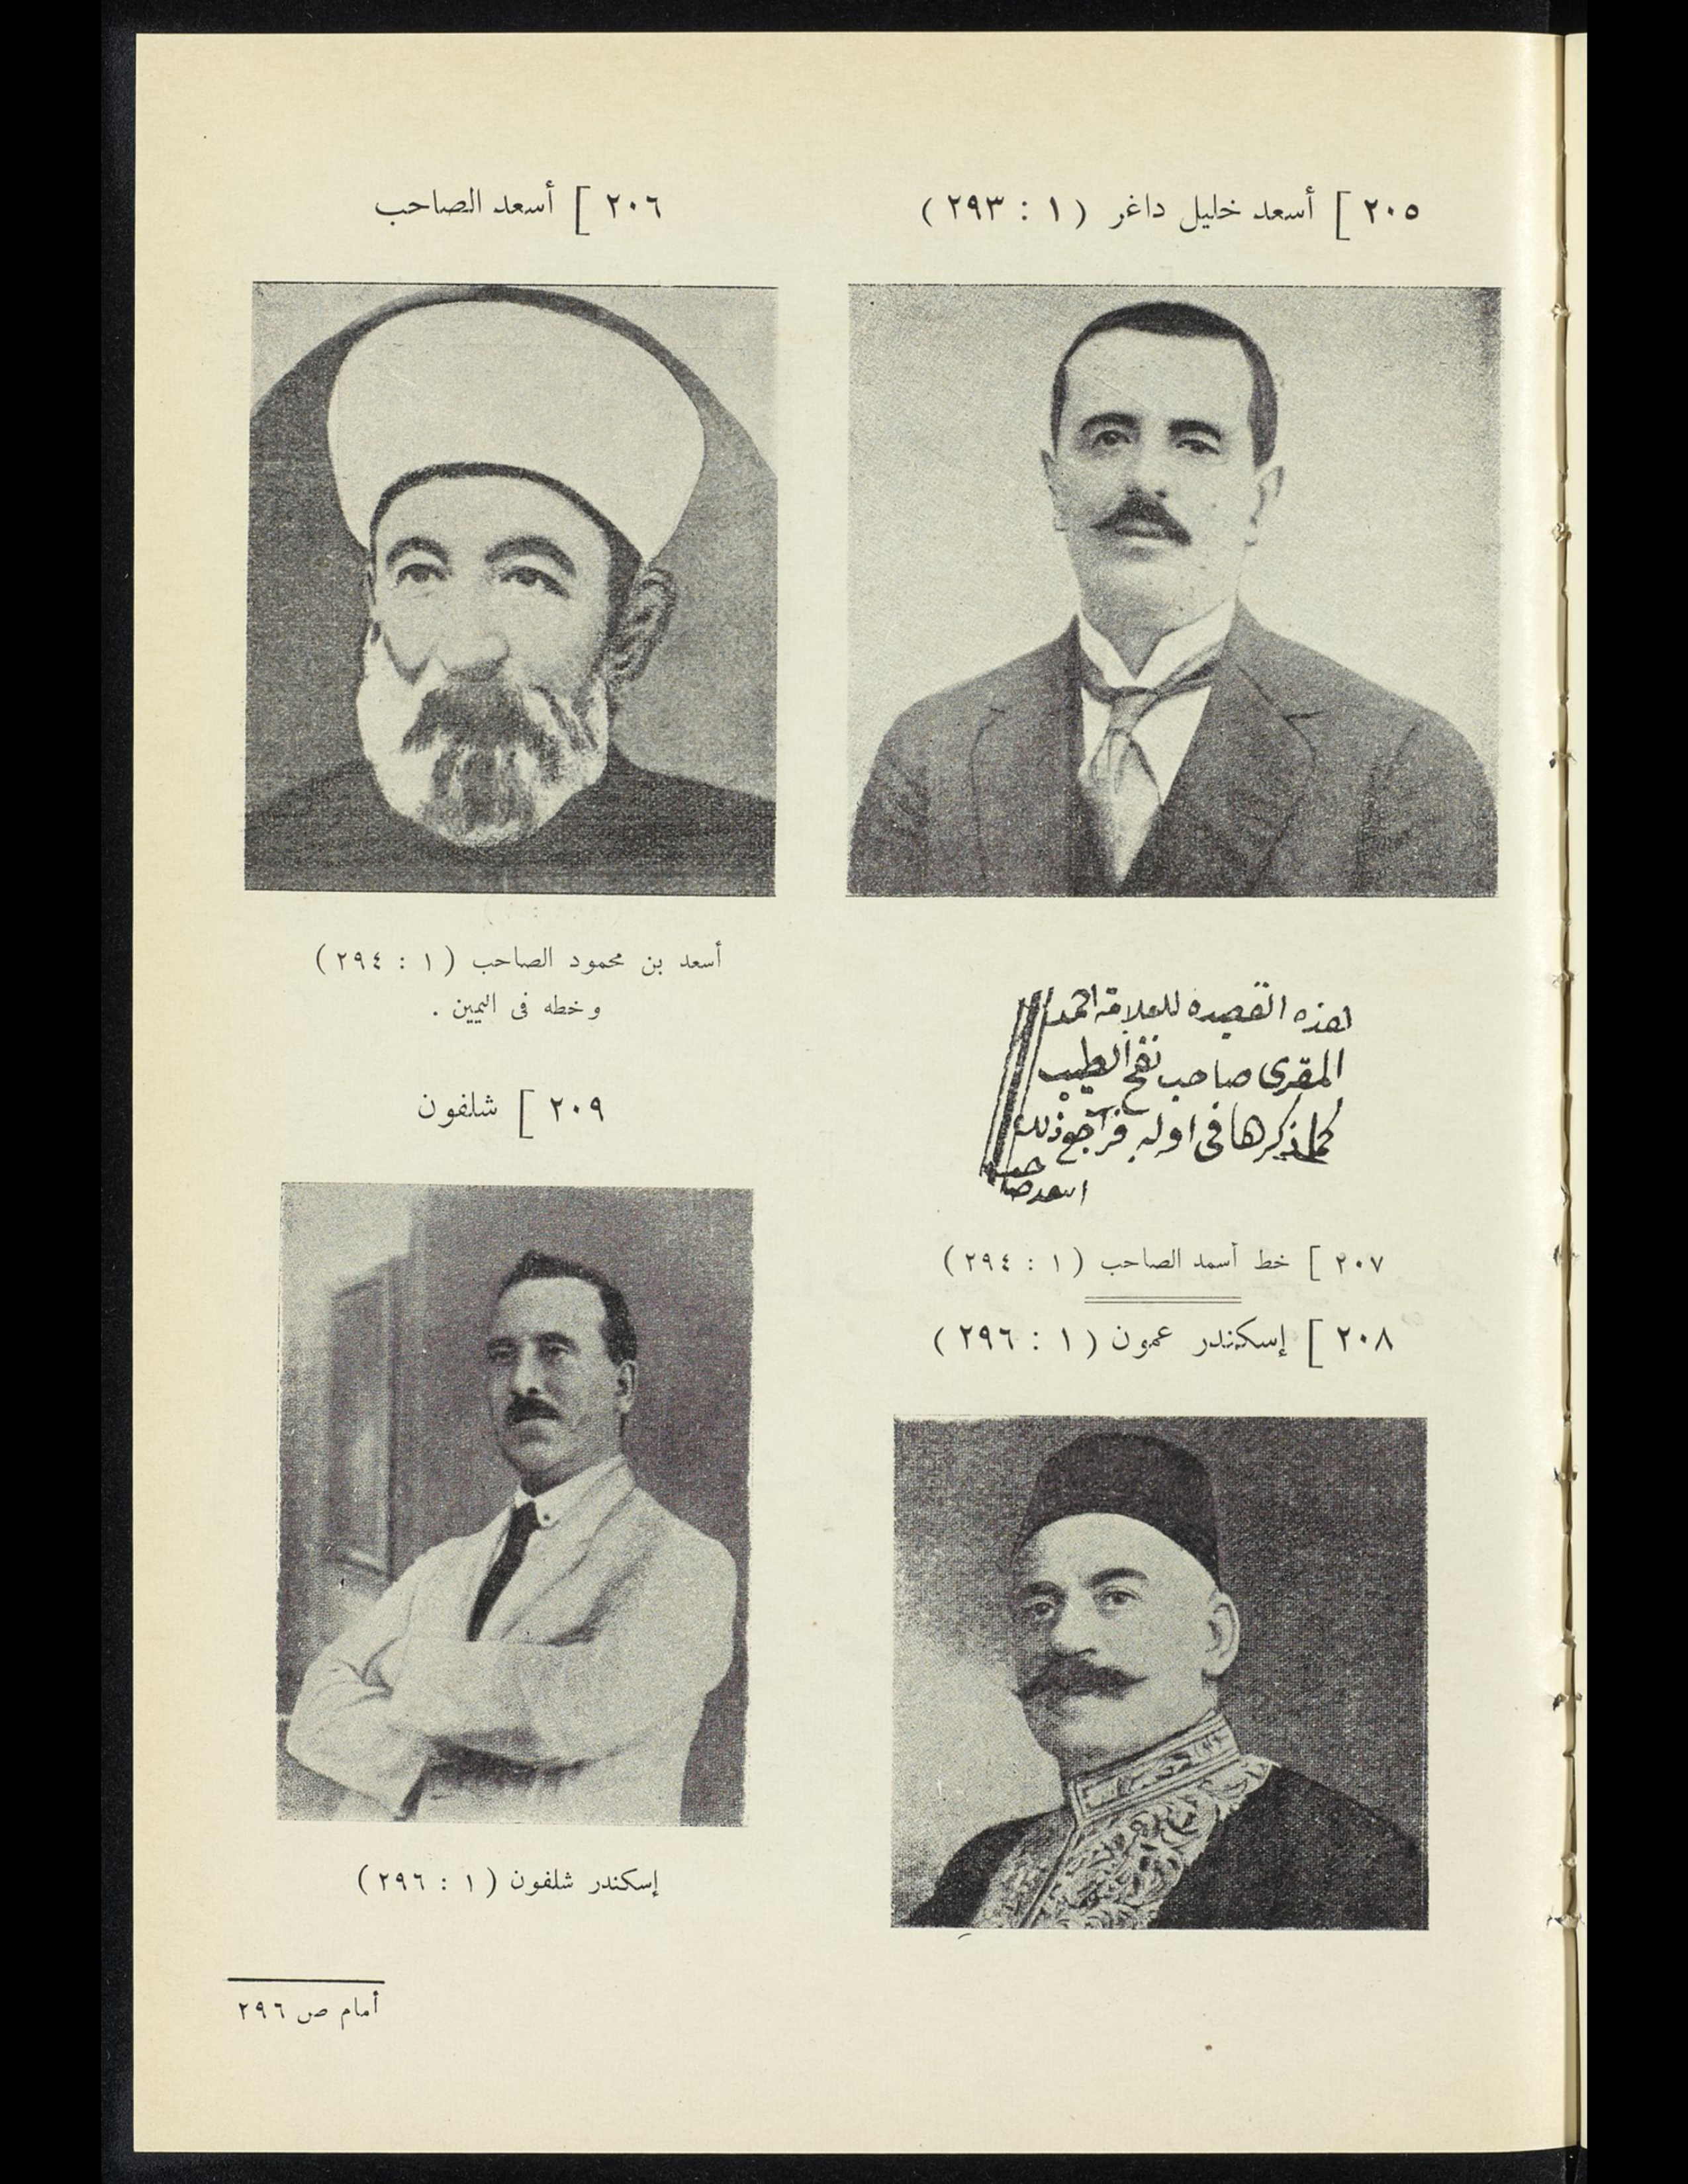 ٢٠٥ ] أسعد خليل داغر ( ١ : ٢٩٣ )
٢٠٦ ] أسعد الصاحب
أسعد بن محمود الصاحب ( ١ : ٢٩٤ )
وخطه فى اليمين .
هذه القصيده للعلامة احمد
المقرى صاحب نفح الطيب
كما ذكرها فى اوله فراجع ذلك
اسعد صاحب
٢٠٧ ] خط أسعد الصاحب ( ١ : ٢٩٤ )
٢٠٨ ] إسكندر عمون ( ١ : ٢٩٦ )
٢٠٩ ] شلفون
إسكندر شلفون ( ١ : ٢٩٦ )
أمام ص ٢٩٦